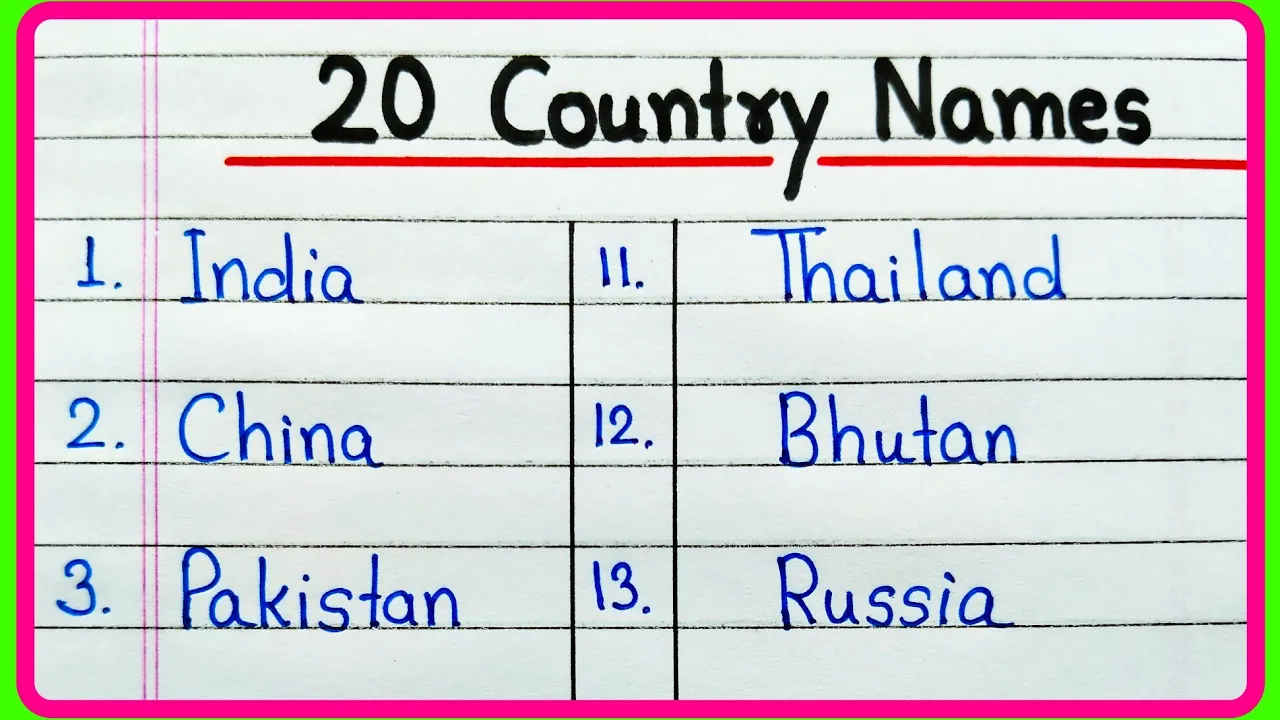 20 Country Names
1. India 11. Thailand
2. China 12. Bhutan
3. Pakistan 13. Russia